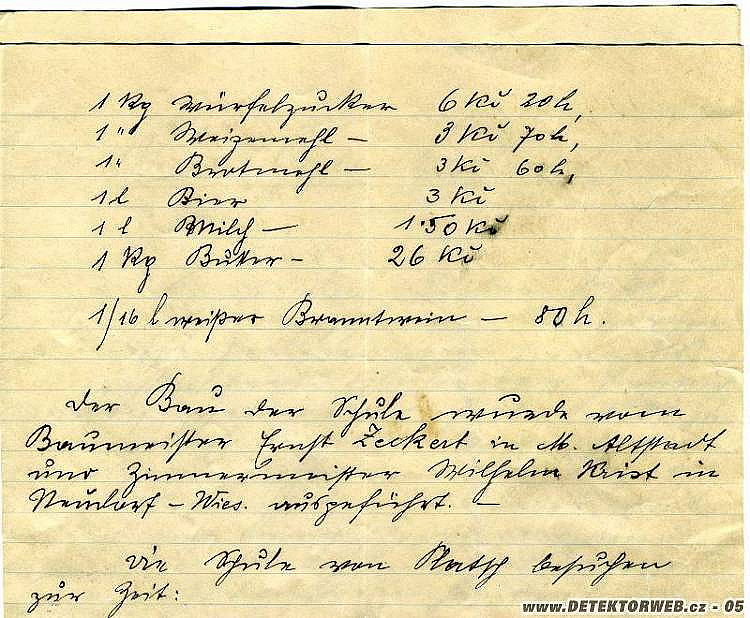 1 Kg Würfelzucker 6 Kč 20 h,
1 " Weizenmehl — 3 Kč 70 h,
1 " Brotmehl — 3 Kč 60 h,
1 l Bier 3 Kč
1 l Milch — 1·50 Kč
1 Kg Butter - 26 Kč
1/16 l weißer Branntwein — 80 h.
Der Bau der Schule wurde vom
Baumeister Ernst Zeckert in M. Altstadt
und Zimmermeister Wilhelm Krist in
Neudorf - Wies. ausgeführt. —
Die Schule von Platsch besuchen
zur Zeit:
www.DETEKTORWEB.cz - 05